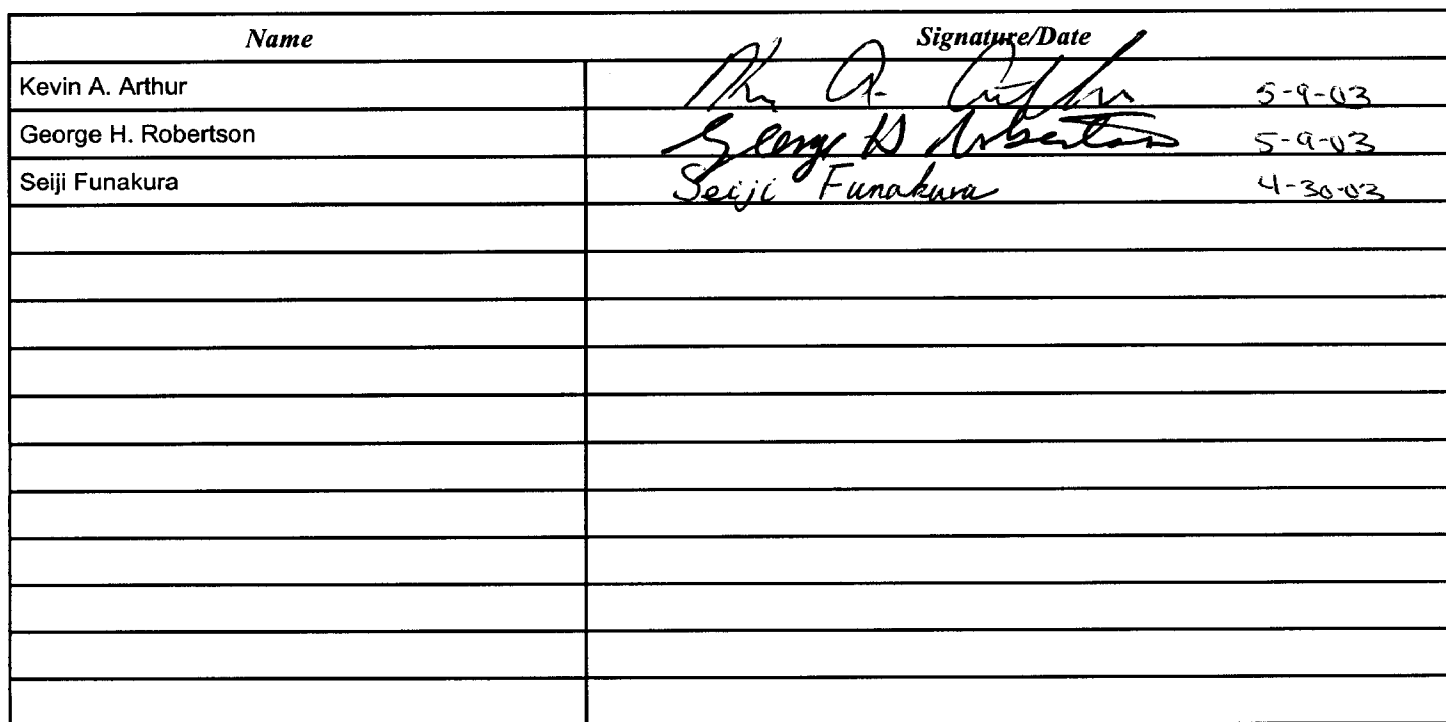 Name Signature/Date
Kevin A. Arthur Kevin A. Arthur 5-9-03
George H. Robertson George H Robertson 5-9-03
Seiji Funakura Seiji Funakura 4-30-03